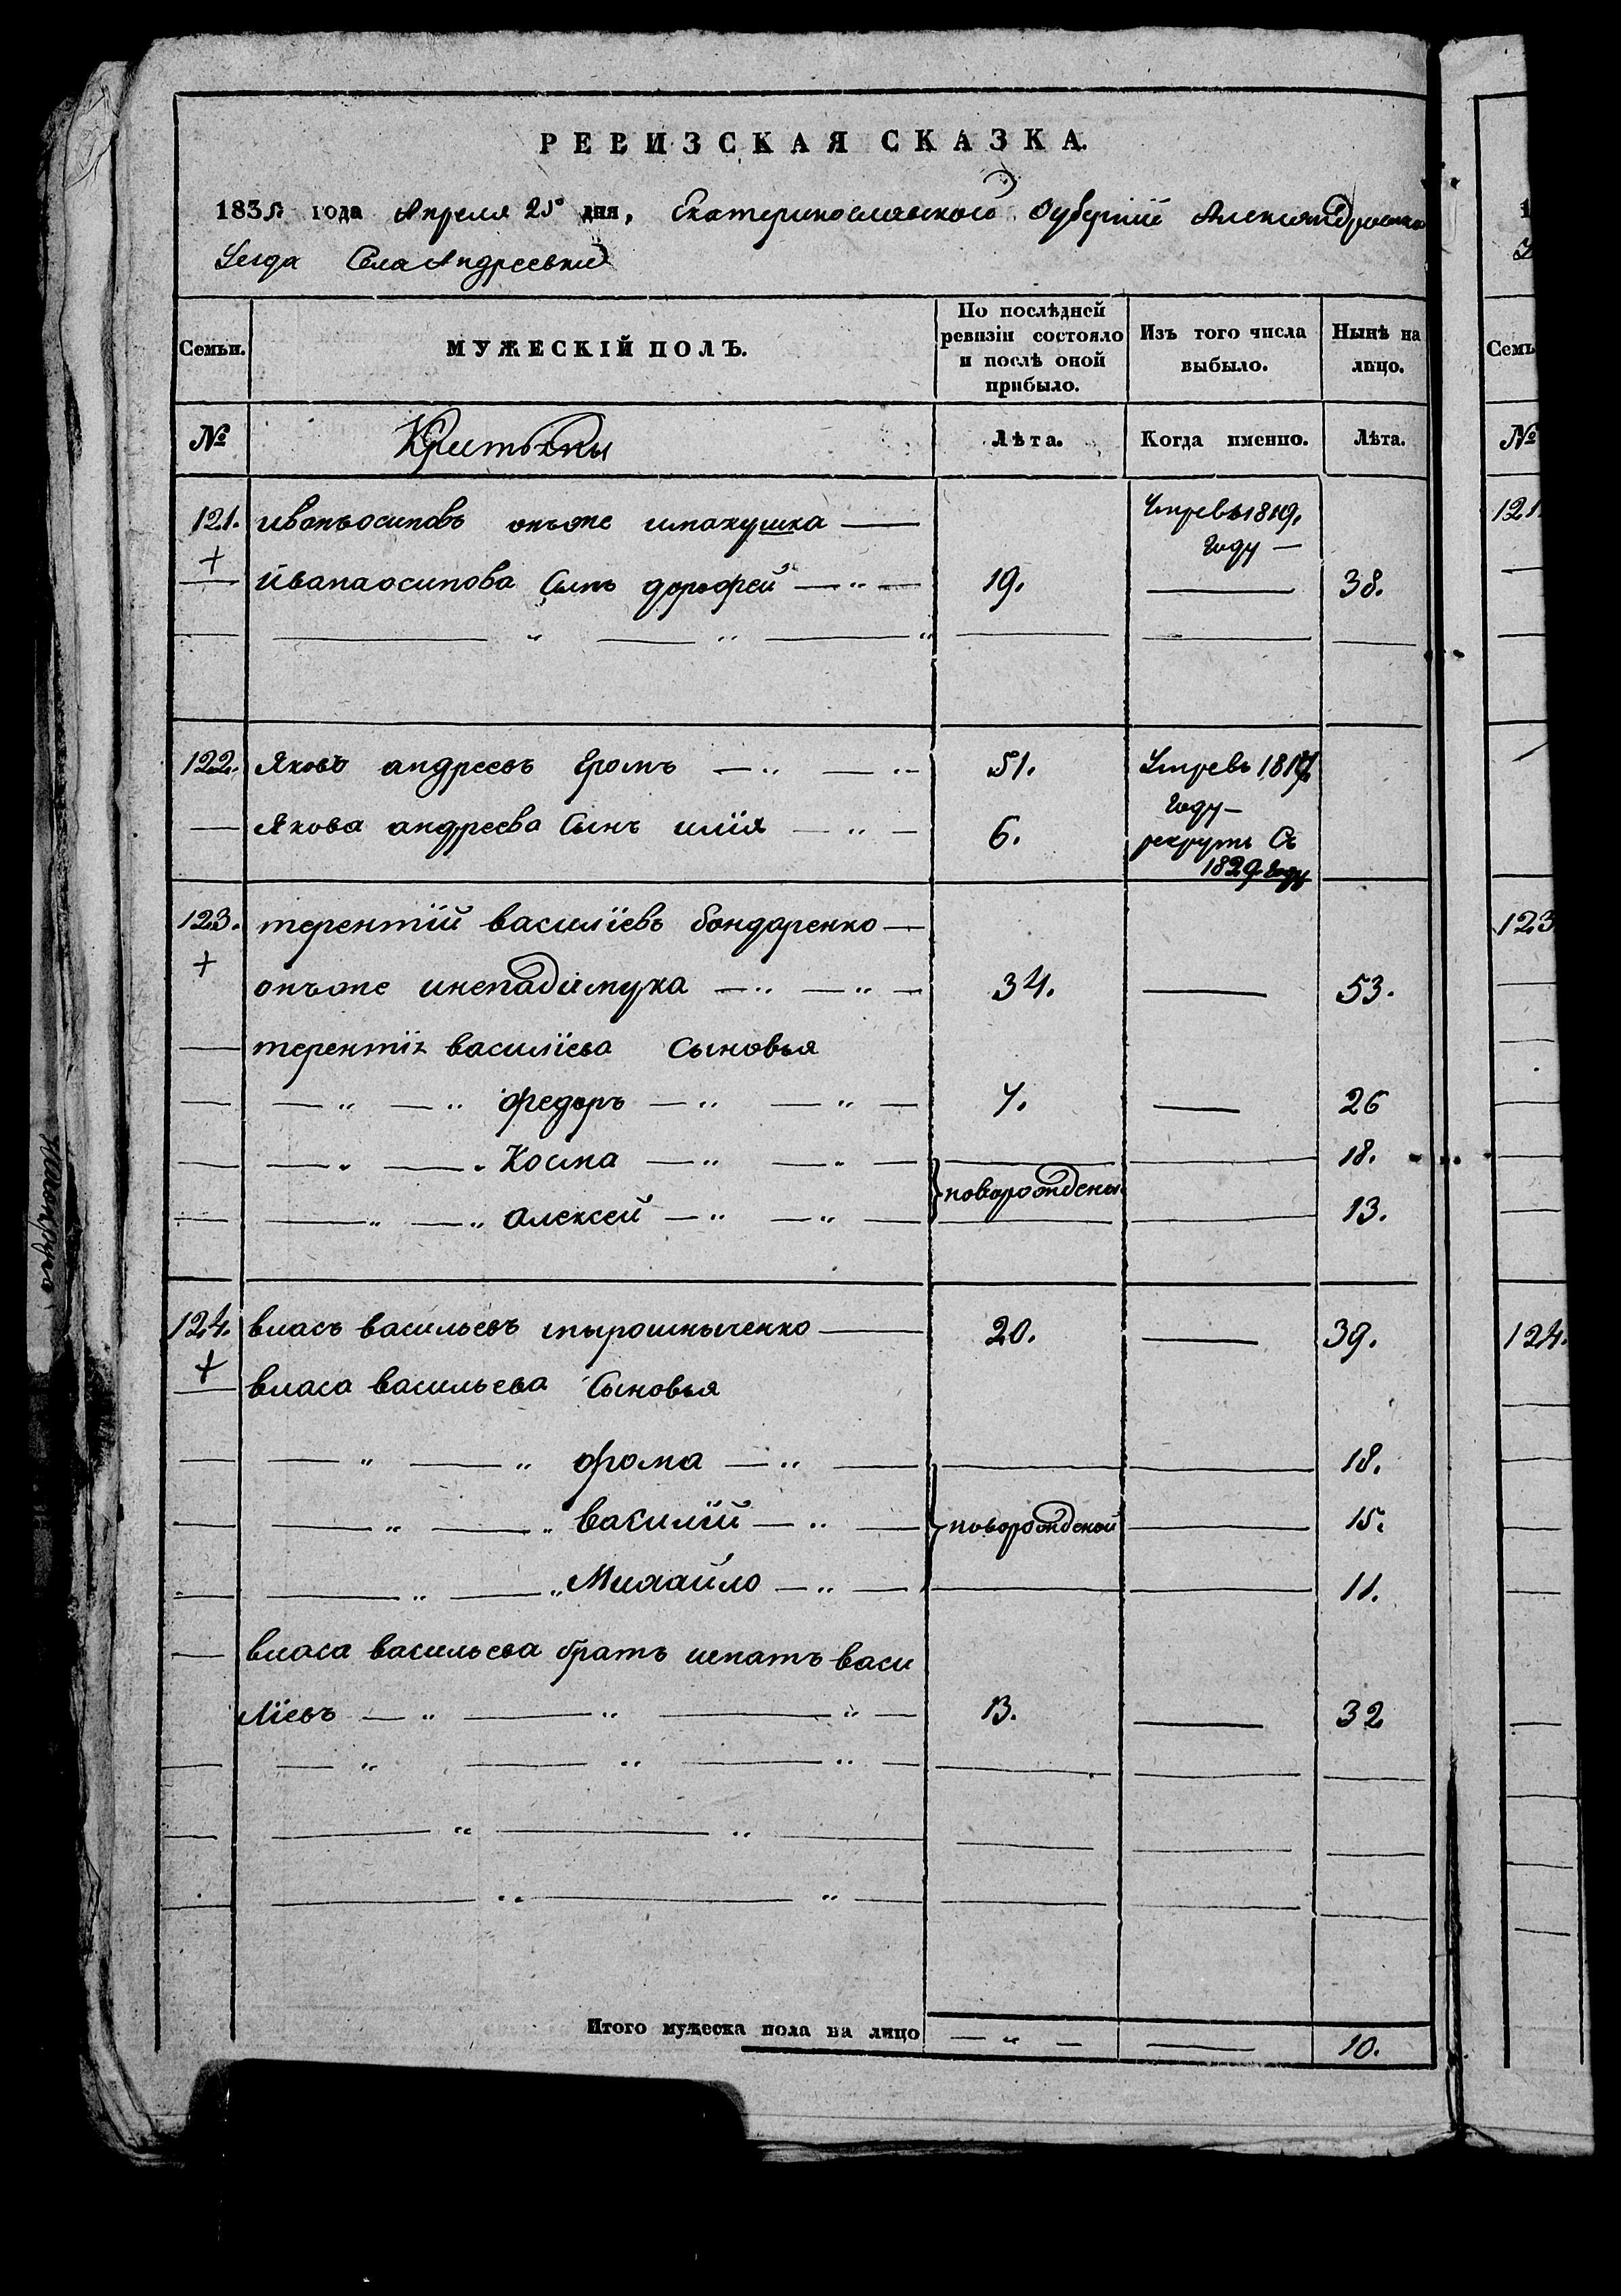 РЕВИЗСКАЯ СКАЗКА.
1835 года Апреля 25 дня, Екатеринославской Губернии Александровска
Уезда Села Андреевки
Семьи. МУЖЕСКІЙ ПОЛЪ. По послѣдней ревизіи состояло и послѣ оной прибыло. Изъ того числа выбыло. Нынѣ на лицо.
№ Лѣта. Когда именно. Лѣта.
121. иванъ осиповъ онъже шпакушка — Умре въ 1819.
году —
+ ивана осипова Сынъ дорофей — 19. — 38.
122. Яковъ андреевъ Громъ — 51. Умре въ 181
году —
— Якова андреева Сынъ илїя — 6. рекрутъ Съ
1829 году
123. терентїй василїевъ бондаренко —
+ онъже инепадимука — 34. — 53.
— терентїя василїева Сыновья
— федоръ — 7. — 26
— Косма — 18.
новорождены
— алексей — 13.
124. власъ васильевъ тырошныченко — 20. — 39.
+ власа васильева Сыновья
— фома — 18.
— василїй — новорожденой — 15.
— Михайло — 11.
— власа васильева братъ игнатъ васи
лїевъ — 13. — 32
Итого мужеска пола на лицо — 10.
Семь
№
121
123
124.